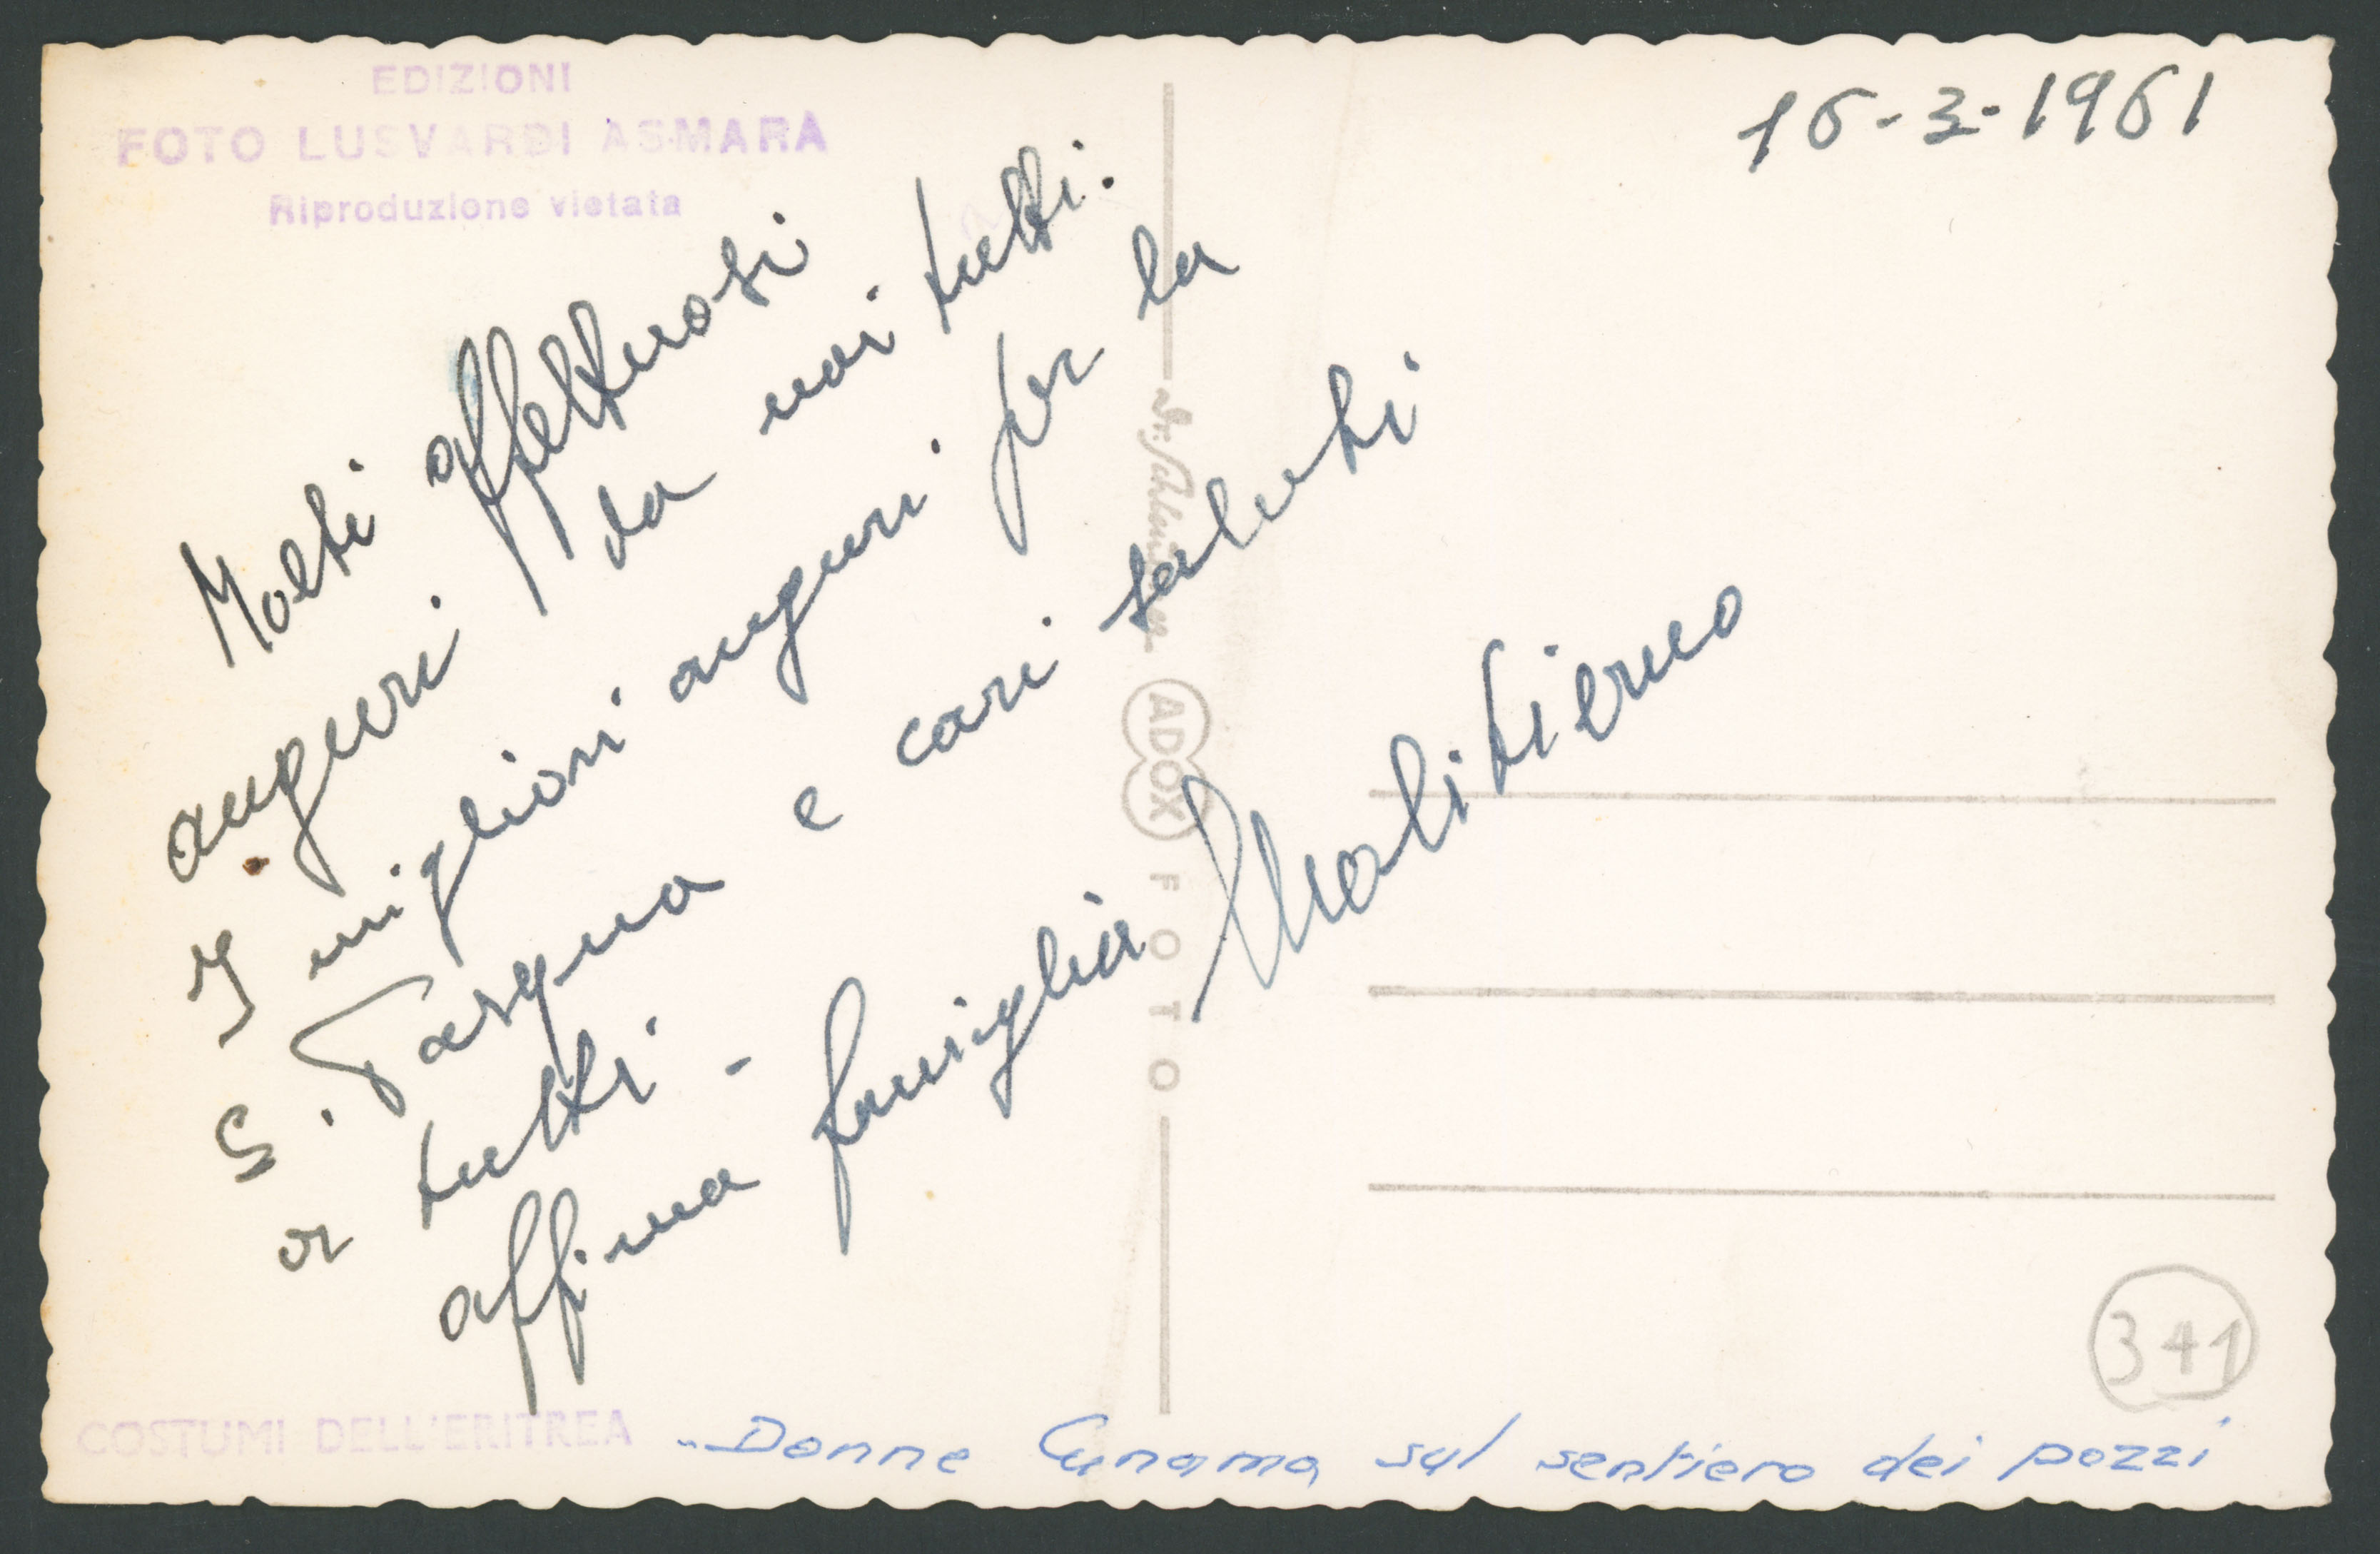 EDIZIONI
FOTO LUSVARDI ASMARA
Riproduzione vietata
16-3-1961
Molti affettuosi
auguri da noi tutti.
I migliori auguri per la
S. Pasqua e cari saluti
a tutti -
affma famiglia Malitierno
Dr. Schleussner
ADOX
FOTO
341
COSTUMI DELL'ERITREA
- Donne Cunama sul sentiero dei pozzi